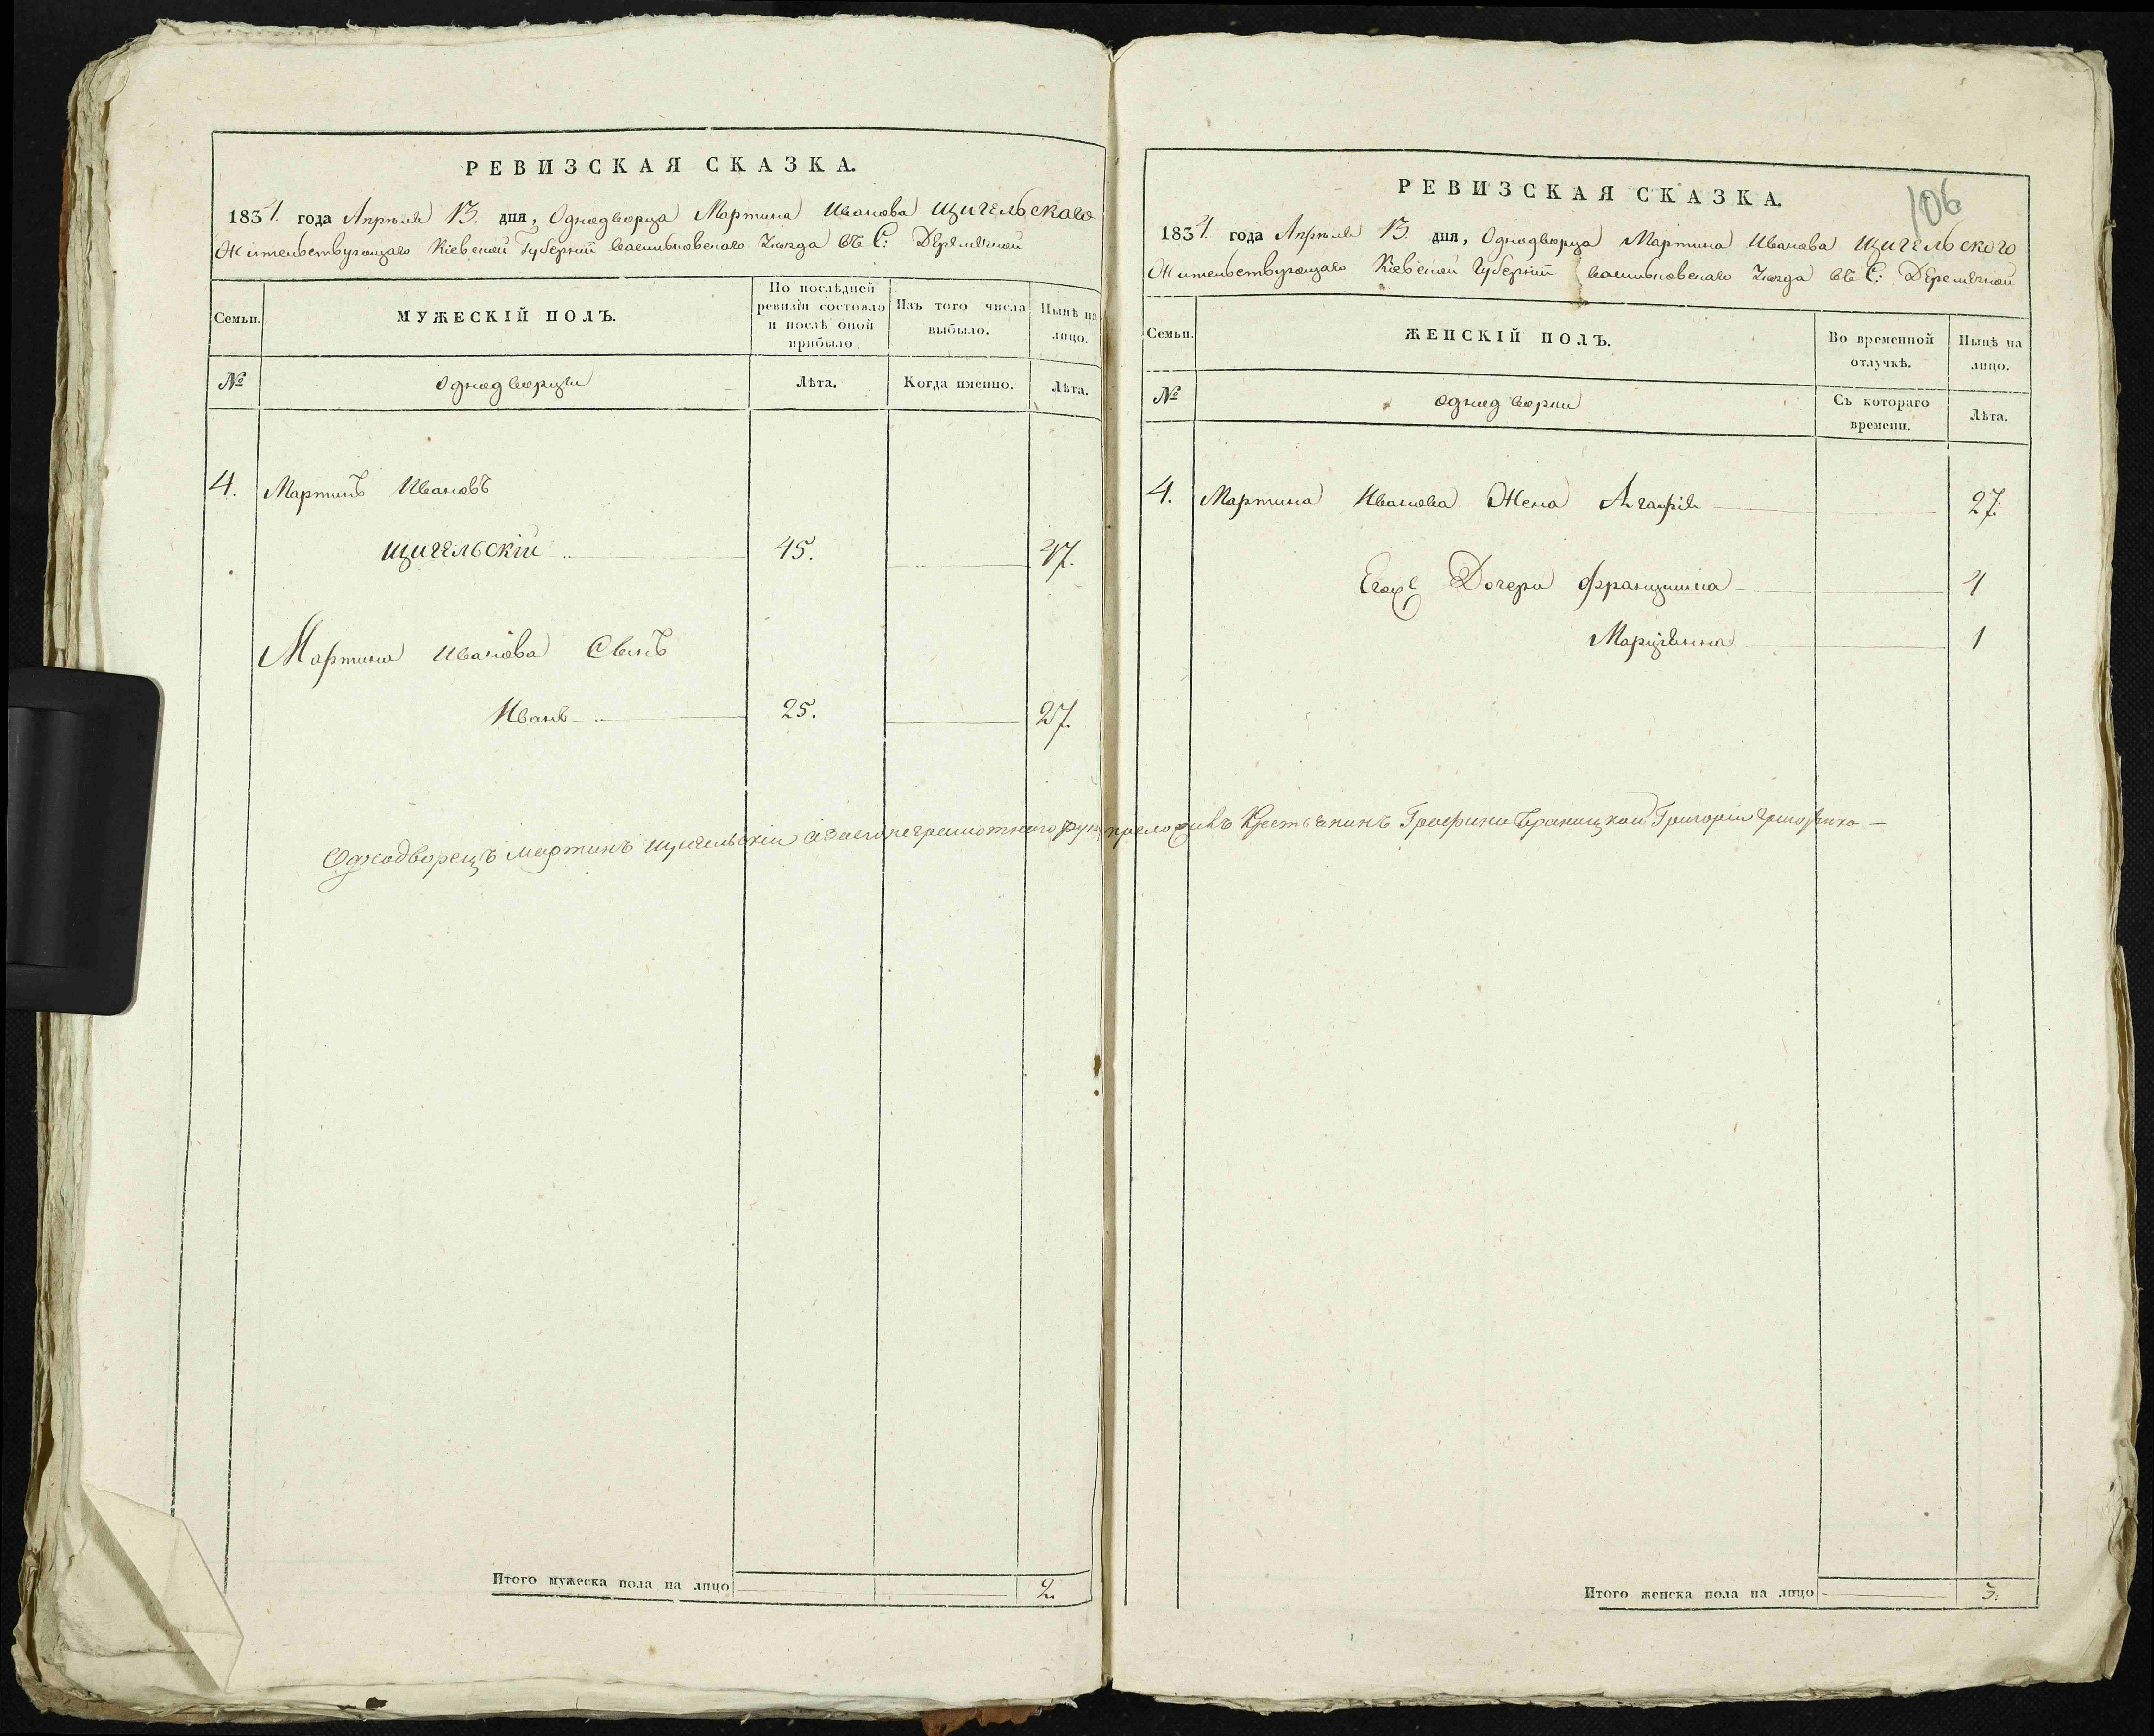 РЕВИЗСКАЯ СКАЗКА.
1834. года Апрѣля 13. дня, Однодворца Мартина Иванова Щигельскаго
Жительствующаго Кіевской Губерніи Васильковскаго Уѣзда въ С:
Семьи.
МУЖЕСКІЙ ПОЛЪ.
По послѣдней ревизіи состояло и послѣ оной прибыло
Изъ того числа выбыло.
Нынѣ на лицо.
№
Однодворцы
Лѣта.
Когда именно.
Лѣта.
4. Мартинъ Ивановъ
Щигельскій 45. 47.
Мартина Иванова Сынъ
Иванъ 25. 27.
Однодворецъ Мартинъ Щигельскій азаего неграмотного руку приложивъ Крестьянинъ Графини Браницкой Григорій
Итого мужеска пола на лицо 2.
106
РЕВИЗСКАЯ СКАЗКА.
1834. года Апрѣля 13. дня, Однодворца Мартина Иванова Щигельского
Жительствующаго Кіевской Губерніи Васильковскаго Уѣзда въ С:
Семьи.
ЖЕНСКІЙ ПОЛЪ.
Во временной отлучкѣ.
Нынѣ на лицо.
№
Однодворки
Съ котораго времени.
Лѣта.
4. Мартина Иванова Жена Агафія 27.
Егоже Дочери Францишка 4
Марціянна 1
Итого женска пола на лицо 3.